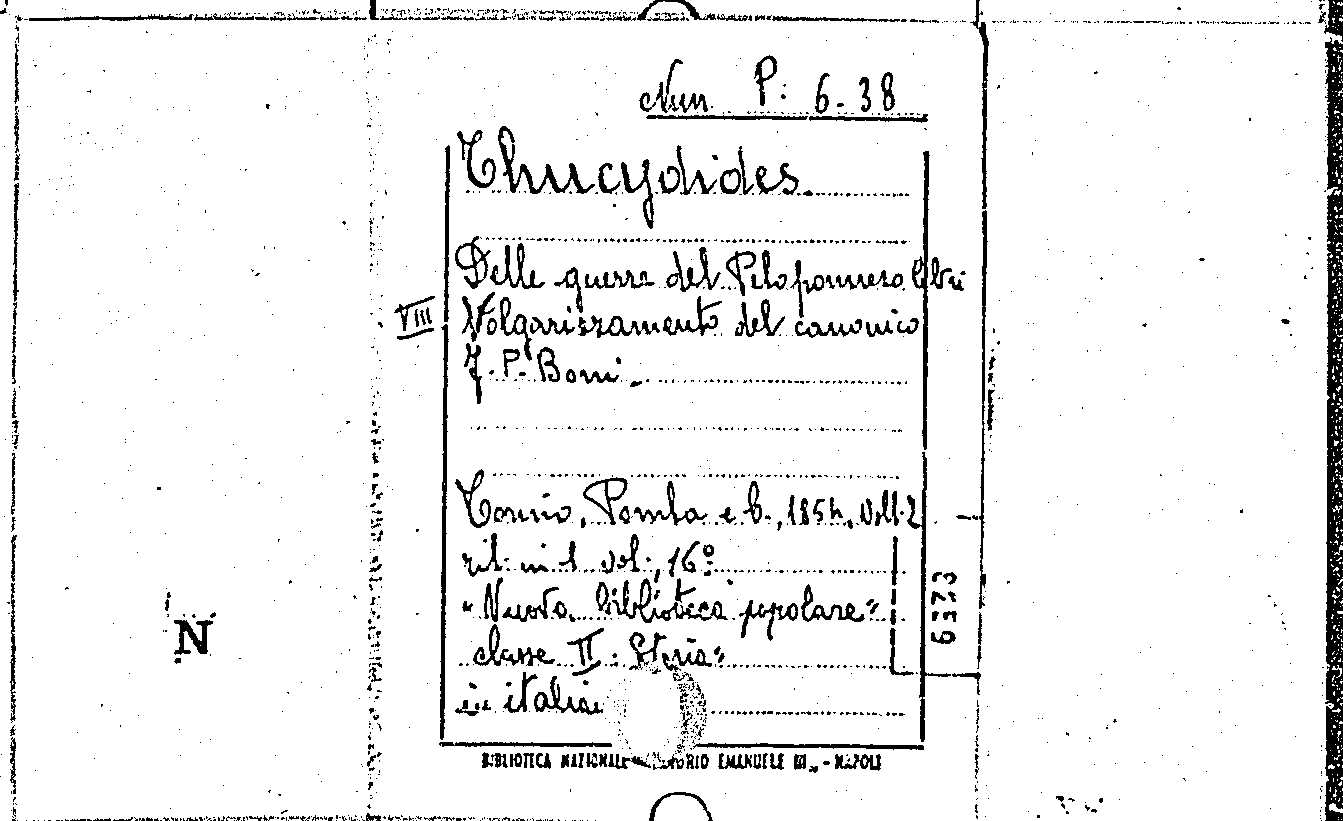 Nun P: 6-38
Thucydides.
Delle guerre del Peloponneso libri
VIII Volgarizzamento del canonico
J. P. Boni.
Torino, Pomba e C., 1854, Voll. 2
ril. in 1 vol., 16º
"Nuova biblioteca popolare"
classe II. Storia"
in italia
6373
N
BIBLIOTECA NAZIONALE EMANUELE III„ - NAPOLI